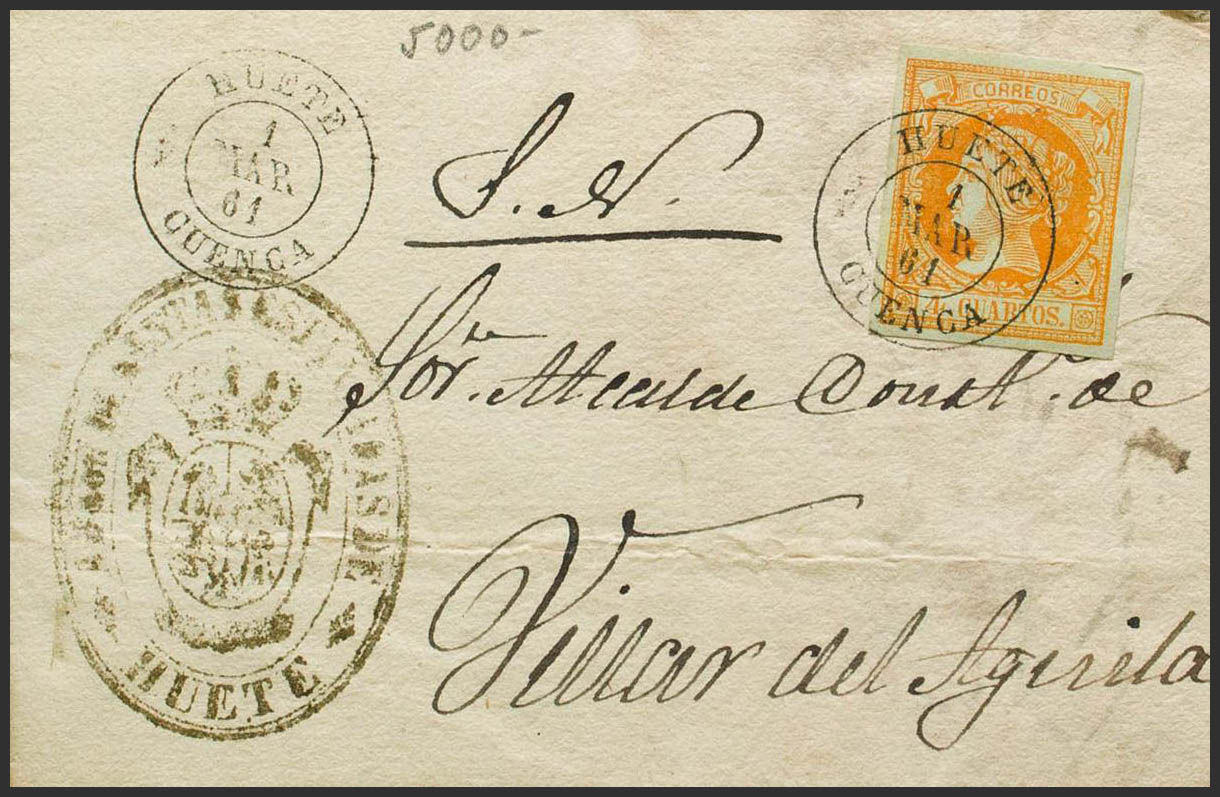 5000-
HUETE
1
MAR
61
CUENCA
S. N.
CORREOS
4 CUARTOS.
HUETE
1
MAR
61
CUENCA
Sor. Alcalde Const. de
Villar del Aguila
HUETE